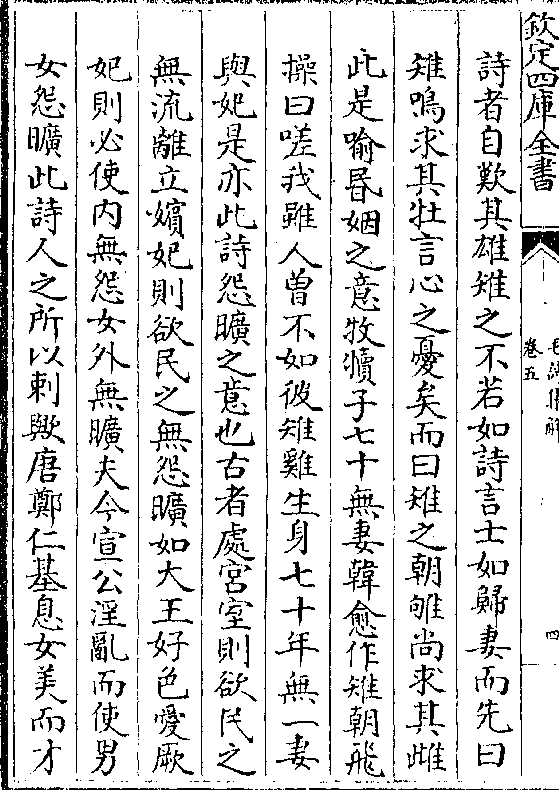 欽定四庫全書
卷五
四
詩者自歎其雄雉之不若如詩言士如歸妻而先曰
雉鳴求其牡言心之憂矣而曰雉之朝雊尚求其雌
此是喻昏姻之意牧犢子七十無妻韓愈作雉朝飛
操曰嗟我雖人曽不如彼雉雞生身七十年無一妻
與妃是亦此詩怨曠之意也古者處宮室則欲民之
無流離立嬪妃則欲民之無怨曠如大王好色愛厥
妃則必使内無怨女外無曠夫今宣公淫亂而使男
女怨曠此詩人之所以刺歟唐鄭仁基息女美而才